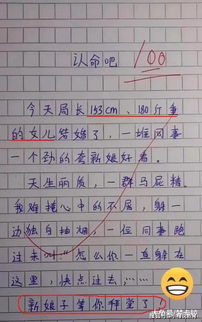 认命吧
100
今天局长153cm、180斤重
的女儿结婚了，一堆同事
一个劲的夸新娘好看。
天生丽质，一群马屁精。
我难掩心中的不屑，躲一
边独自抽烟，一位同事跑
过来叫“怎么你一直躲在
这里，快点过去，……
新娘子等你拜堂了！